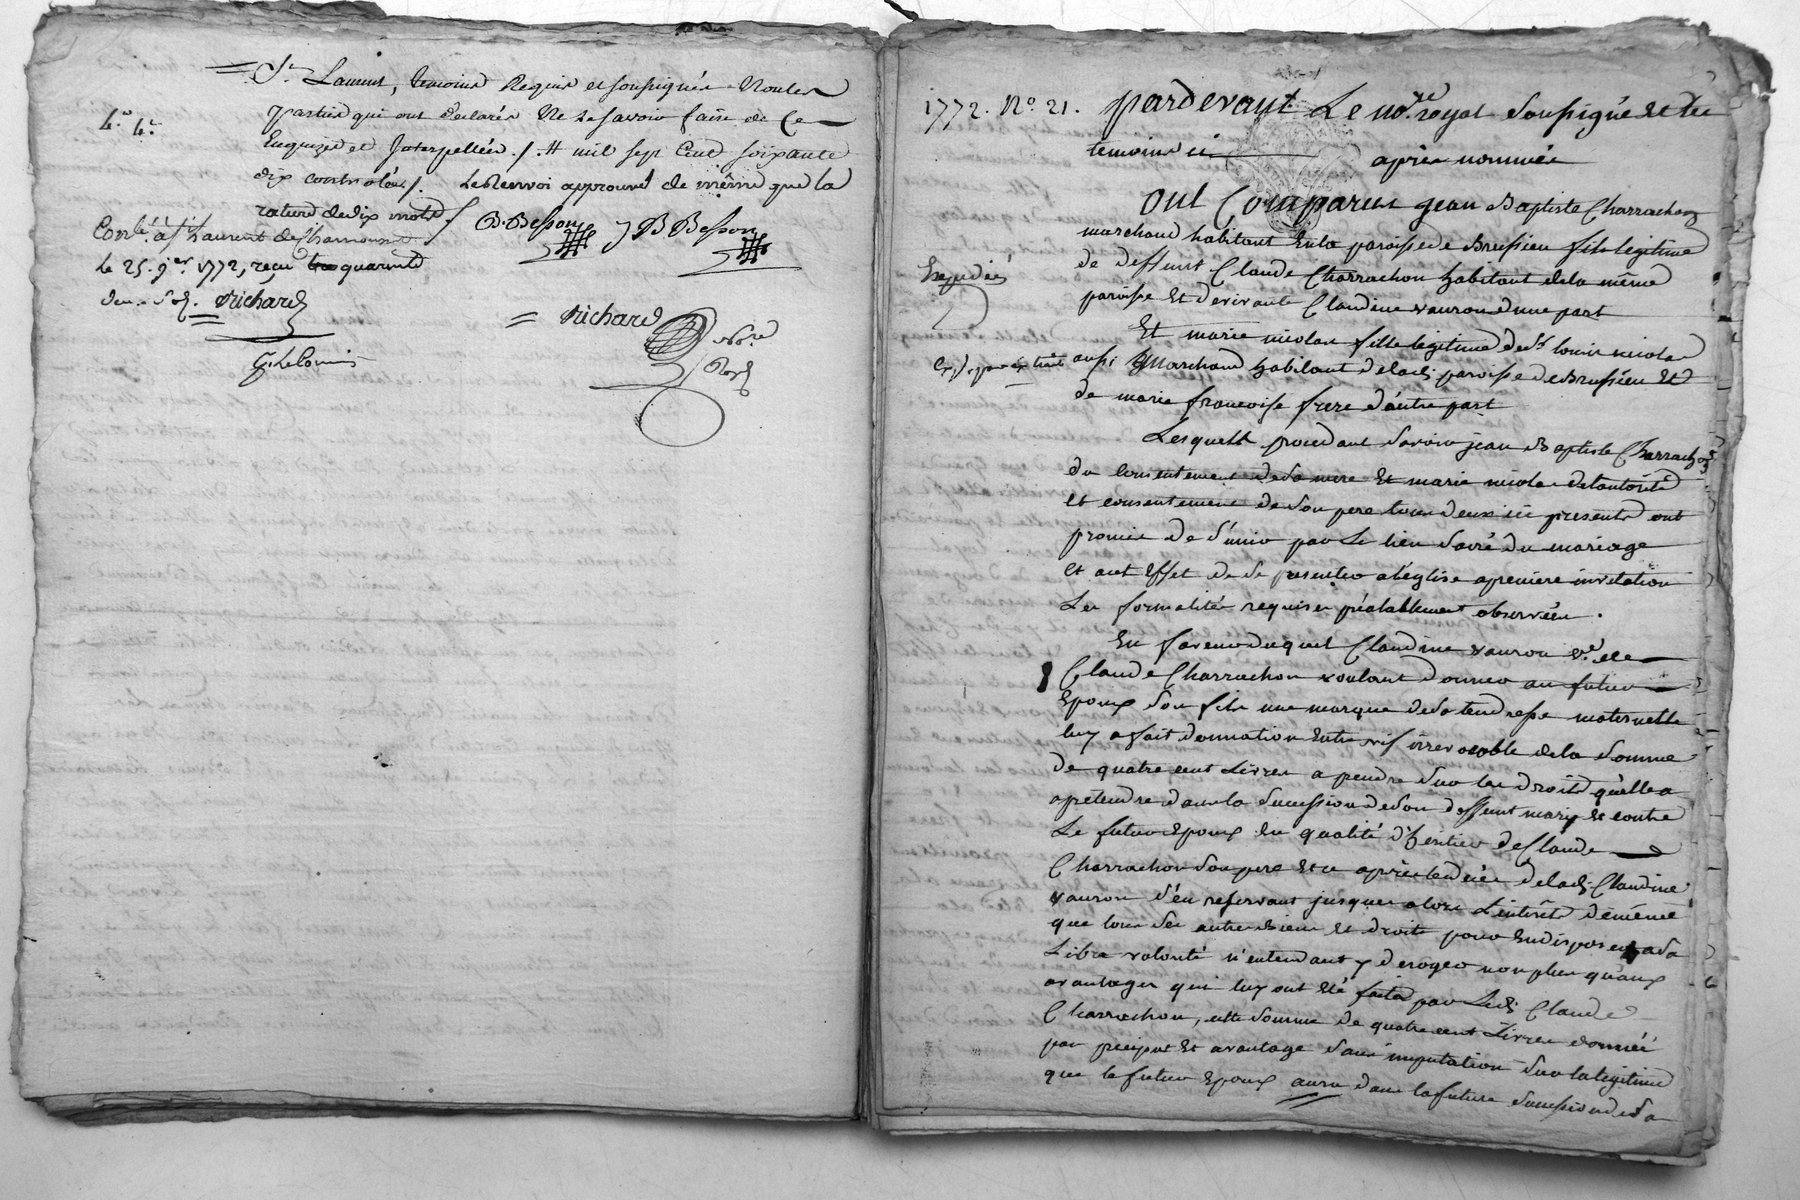 St Laurent, temoins Requis et soussignés Nonles
parties qui ont declarés Ne le savoir faire de ce
Enquises et Interpellées ./. # mil sept Cent soixante
dix controlées /. Le Renvoi approuvé de même que la
rature de dix mots /.
B. Besson J B Besson
4.º 4.º
Conlé. à St Laurent de Chamousset
Le 25. 9.er 1772, reçu quarente
deux sols. Richard
Richard Nore
Royal
1772. Nº. 21. pardevant Le nore. royal Soussigné et les
temoins ci après nommés
Ont Comparus jean Baptiste Charrachon
marchand habitant En la paroisse de Brussieu fils legitime
de deffunt Claude Charrachon habitant de la même
paroisse Et de vivante Claudine vauron d'une part
Et marie nicolas fille legitime de sr. louis nicolas
aussi Marchand habitant de ladi. paroisse de Brussieu Et
de marie françoise frere d'autre part
Expedié
Exp. par extrait
Lesquels procedant savoir jean Baptiste Charrachon
du consentement de sa mere Et marie nicolas de l'autorité
et consentement de son pere tous deux ici presents ont
promis de s'unir par Le lien sacré du mariage
et a cet Effet de se presenter a l'eglise a premiere invitation
Les formalités requises préalablement observées .
En faveur duquel Claudine vauron ve. de
Claude Charrachon voulant donner au futur
Epoux son fils une marque de sa tendresse maternelle
luy a fait donnation Entre vif irrevocable de la somme
de quatre cent Livres a prendre sur les droits qu'elle a
a pretendre dans la succession de son deffunt mary Et contre
Le futur Epoux En qualité d'heritier de Claude
Charrachon son pere Et ce après le décès de ladi. Claudine
vauron s'en reservant jusques alors L'intérêt de même
que tous ses autres biens Et droits pour En disposer a sa
Libre volonté n'entendant y deroger non plus qu'aux
avantages qui luy ont été faits par Ledi. Claude
Charrachon, cette somme de quatre cent Livres donnée
par preciput Et avantage sans imputation sur la legitime
que le futur Epoux aura dans la future succession de sa